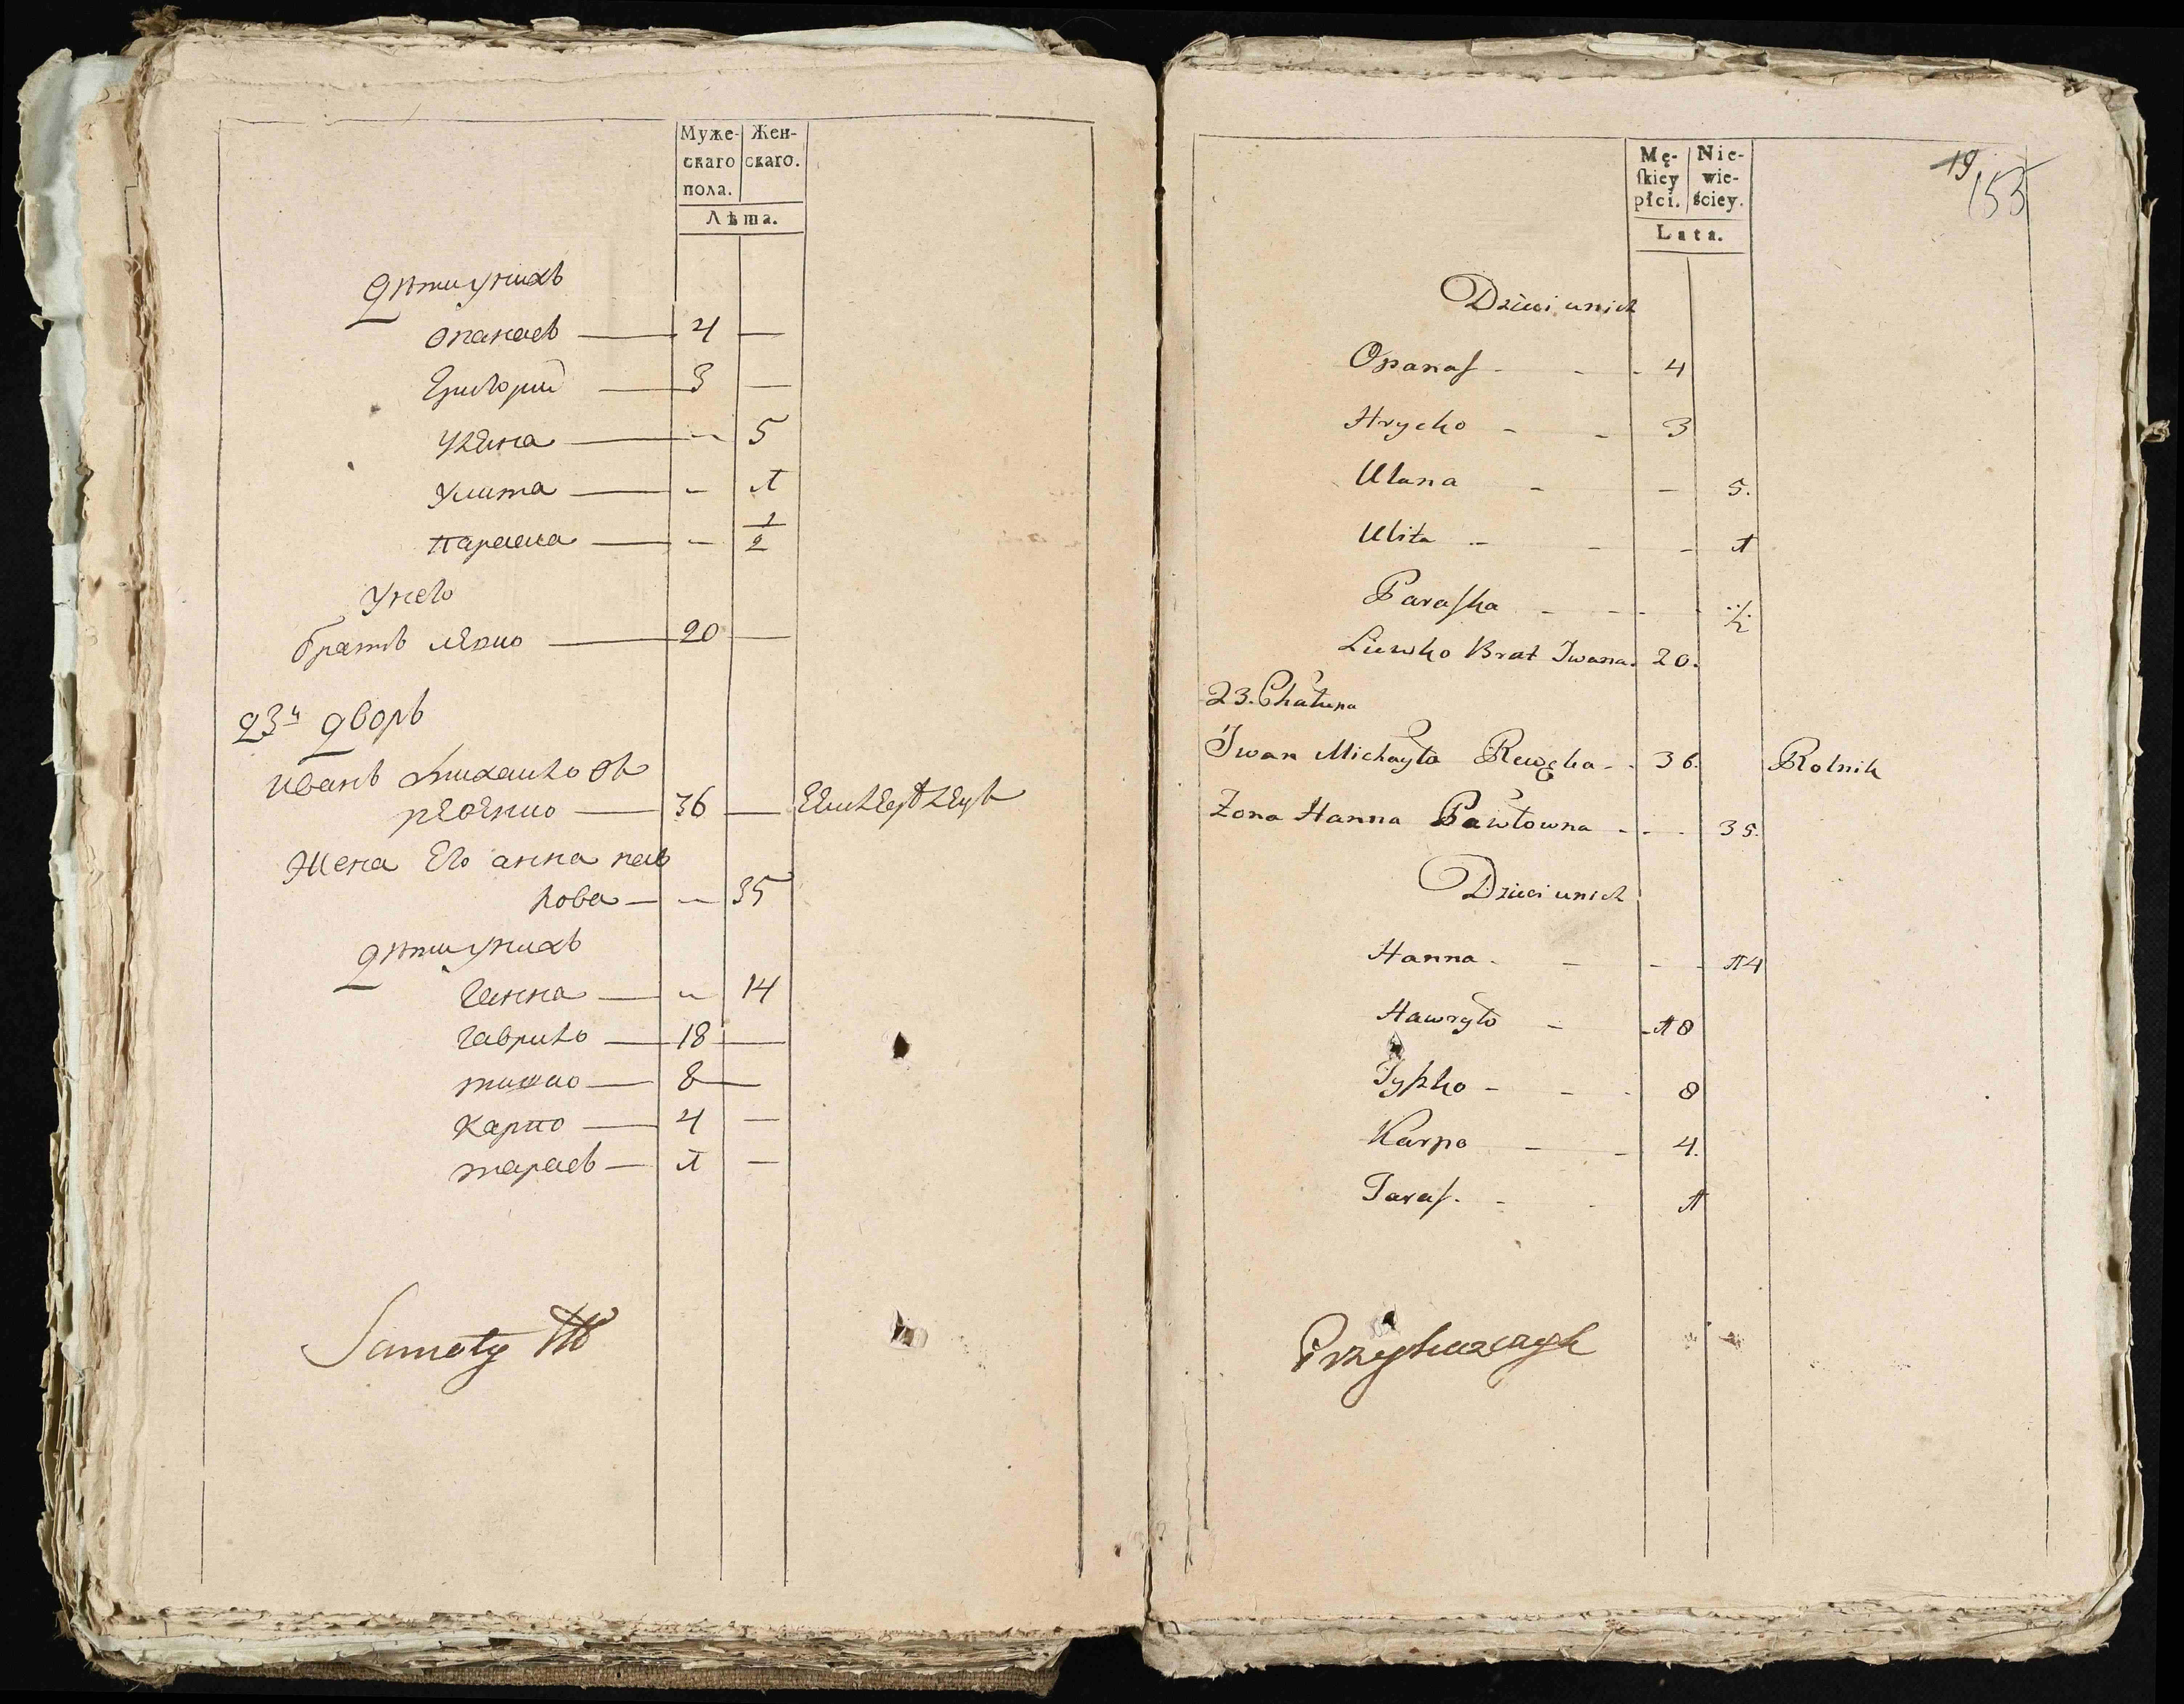 Муже- Жен-
скаго скаго.
пола.
Лѣта.
Дѣти уних
опанасъ 4 —
Григорий 3 —
улЯна - 5
Улита - 1
параска - 1/2
Унего
братъ левко 20 —
23й дворъ
иванъ михайловъ
ревенко 36 —
Жена Его анна пав
лова - - 35
Дѣти унихъ
ганна - 14
гаврило 18 —
тишко 8 —
карпо 4 —
тарасъ 1 —
Mę- Nie-
ſkiey wie-
płci. ściey.
Lata.
19
153
Dzieci unich
Opanaſ - - - 4
Hrycko - - 3
Ulana - - 5.
Ulita - - - 1
Paraſka - - - 1/2
Liewko Brat Iwana. 20.
23. Chałupa
Iwan Michayło - 36. Rolnik
Żona Hanna Pawłowna - - - 35.
Dzieci unich
Hanna - - - - 14
Hawryło - - 18
Tyſzko - - - 8
Karpo - - 4.
Taraſ. - - 1